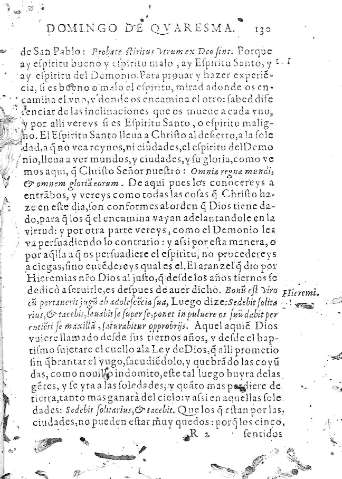 DOMINGO DE QVARESMA. 130
de San Pablo: Probate spiritus vtrum ex Deo sint. Porque
ay espiritu bueno y espiritu malo, ay Espiritu Santo, y
ay espiritu del Demonio. Para prouar y hazer experiē
cia, si es bueno o malo el espiritu, mirad adonde os en
camina el vno, y donde os encamina el otro: sabed dife
renciar de las inclinaciones que os mueue a cada vno,
y por alli vereys si es Espiritu Santo, o espiritu malig-
no. El Espiritu Santo lleua a Christo al desierto, a la sole
dad, a q̃ no vea reynos, ni ciudades, el espiritu del Demo
nio, lleua a ver mundos, y ciudades, y su gloria, como ve
mos aqui, q̃ Christo Señor nuestro: Omnia regna mundi,
& omnem gloriã eorum. De aqui pues los conocereys a
entrãbos, y vereys como todas las cosas q̃ Christo ha-
ze en este dia, son conformes al orden q̃ Dios tiene da-
do, para q̃ los q̃ el encamina vayan adelantandole en la
virtud: y por otra parte vereys, como el Demonio les
va persuadiendo lo contrario: y assi por esta manera, o
por aq̃lla a q̃ os persuadiere el espiritu, no procedereys
a ciegas, sino entēdereys qual es el. El aranzel q̃ dio por
Hieremias nr̃o Dios al justo, q̃ desde los años tiernos se
dedicò a seruirle, es despues de auer dicho. Bonũ est viro
cũ portauerit jugũ ab adolescētia sua, Luego dize: Sedebit solita
rius, & tacebit, leuabit se super se, ponet in puluere os suũ dabit per
cutiēti se maxillã, saturabitur opprobrijs. Aquel a quiē Dios
vuiere llamado desde sus tiernos años, y desde el bap-
tismo sujetare el cuello a la Ley de Dios, q̃ alli prometio
sin q̃brantar el yugo, sacudiēdolo, y quebrãdo las coyũ
das, como nouillo indomito, este tal luego huyra de las
gētes, y se yra a las soledades, y quãto mas perdiere de
tierra, tanto mas ganarà del cielo: y assi en aquellas sole
dades: Sedebit solitarius, & tacebit. Que los q̃ estan por las
ciudades, no pueden estar muy quedos: porq̃ los cinco,
R 2 sentidos
Hieremi.